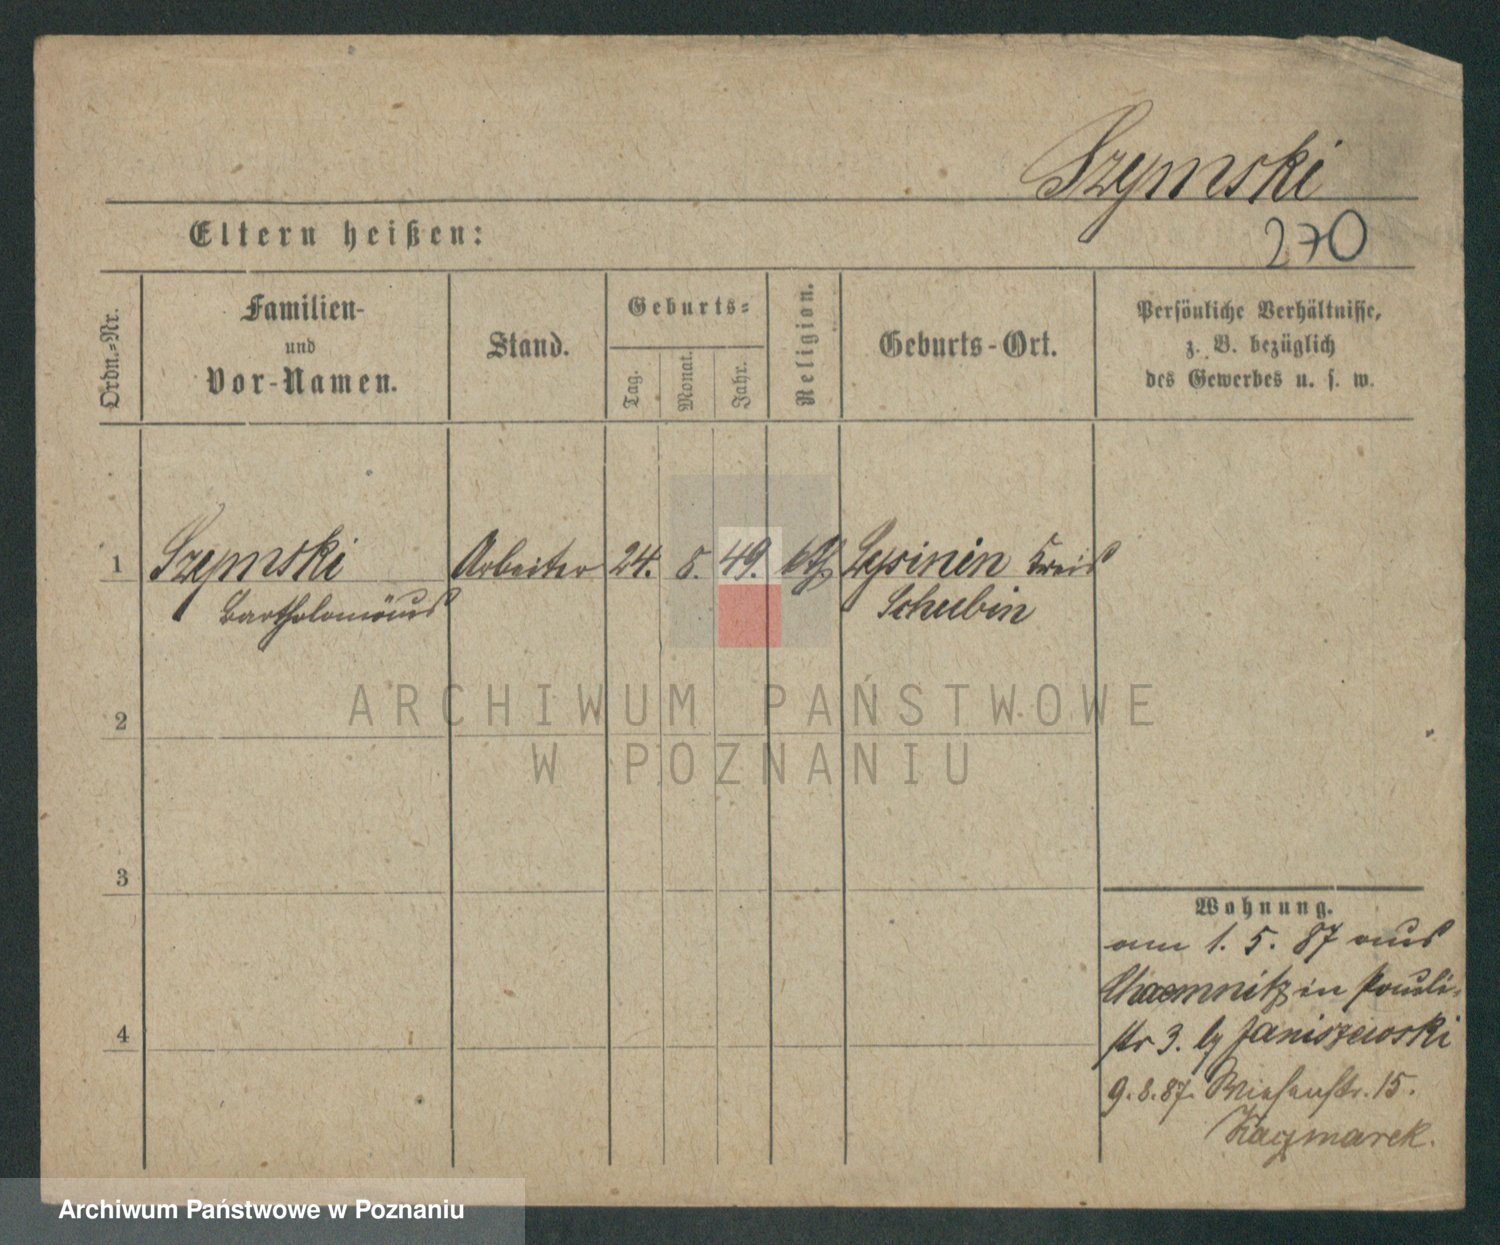 Szymski
270
Eltern heißen:
Ordn.-Nr.
Familien-
und
Vor-Namen.
Stand.
Geburts-
Tag.
Monat.
Jahr.
Religion.
Geburts-Ort.
Persönliche Verhältnisse,
z. B. bezüglich
des Gewerbes u. s. w.
1 Szymski Arbeiter 24. 8. 49. kth Kreis
Bartholomäus Schubin
2
3
4
Wohnung.
am 1. 5. 87 aus
Chaemnitz in Pauli-
str 3. bz Janiszewski
9. 8. 87. Wiesenstr. 15.
Kaczmarek.
ARCHIWUM PAŃSTWOWE
W POZNANIU
Archiwum Państwowe w Poznaniu